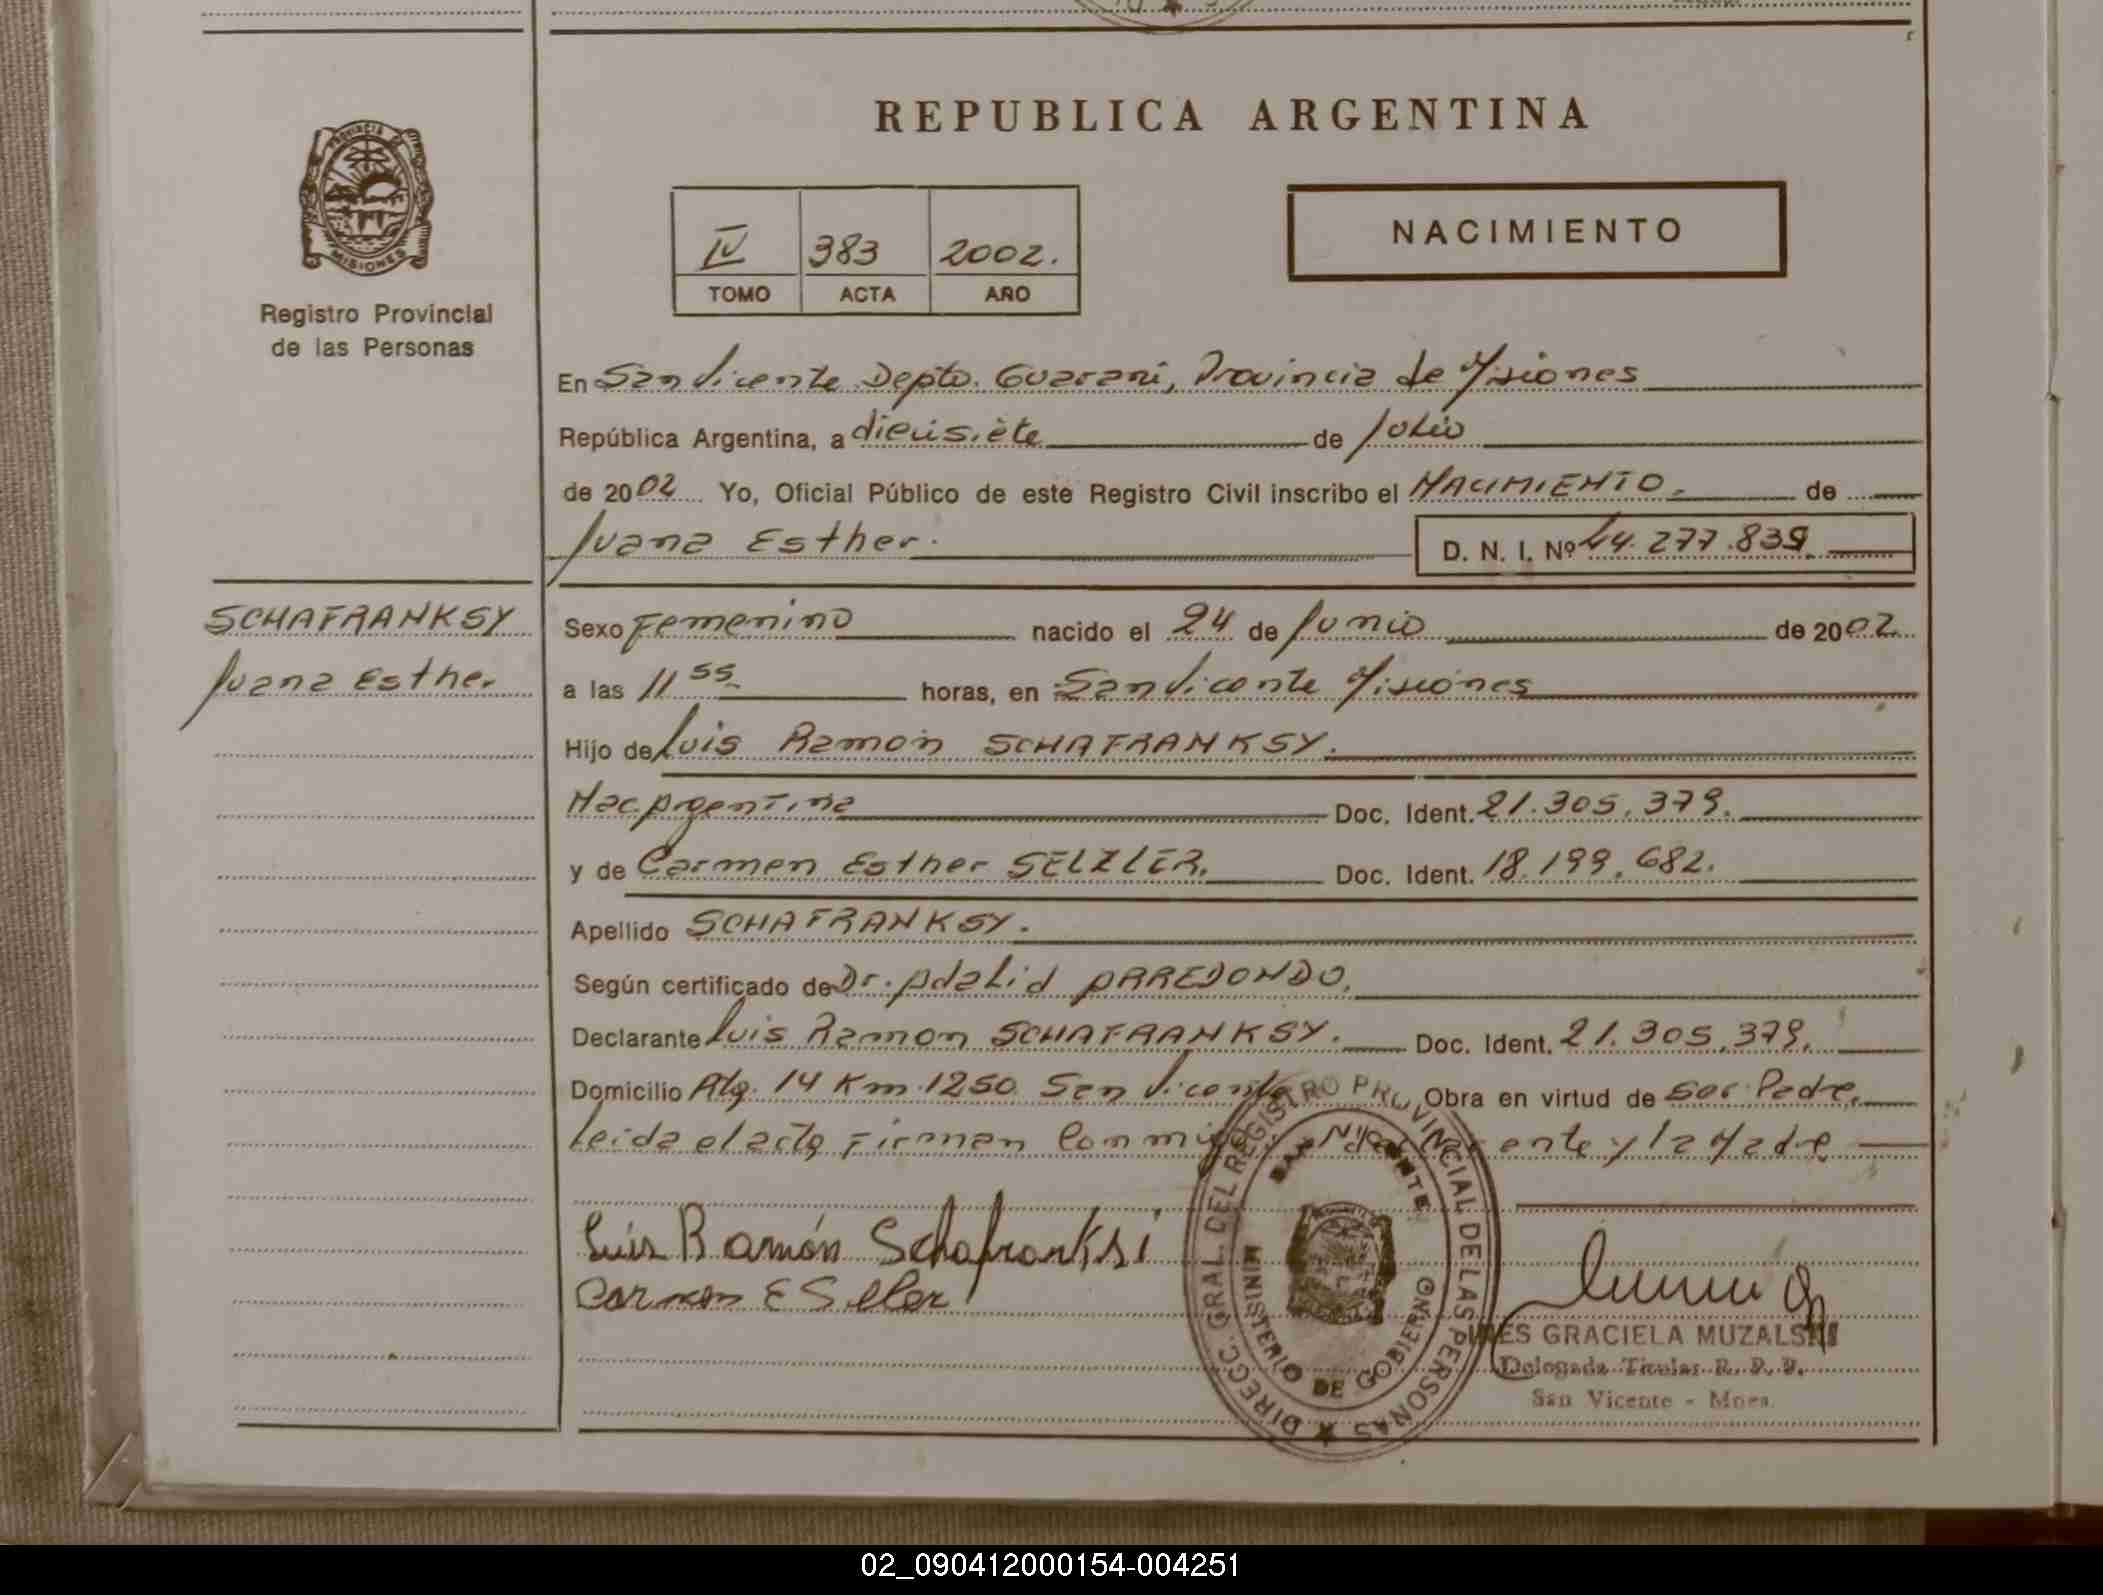 REPUBLICA ARGENTINA
PROVINCIA DE
MISIONES
Registro Provincial
de las Personas
IV 383 2002.
TOMO ACTA AÑO
NACIMIENTO
En San Vicente Depto. Guaraní, Provincia de Misiones
República Argentina, a diecisiete de Julio
de 2002 Yo, Oficial Público de este Registro Civil inscribo el NACIMIENTO. de
Juana Esther.
D. N. I. Nº 44.277.839
SCHAFRANKSY
Juana Esther
Sexo Femenino nacido el 24 de Junio de 2002
a las 11 55 horas, en San Vicente Misiones
Hijo de Luis Ramón SCHAFRANKSY.
Nac. Argentina Doc. Ident. 21.305.379.
y de Carmen Esther SELZLER. Doc. Ident. 18.199.682.
Apellido SCHAFRANKSY.
Según certificado de Dr. Adalid ARREDONDO.
Declarante Luis Ramon SCHAFRANKSY. Doc. Ident. 21.305.379.
Domicilio Alg. 14 Km. 1250 San Vicente Obra en virtud de ser Padre.
Leida el acta, Firman Conmigo y la Madre
Luis Ramón Schafranksi
Carmen E
DIRECC. GRAL. DEL REGISTRO PROVINCIAL DE LAS PERSONAS
SAN VICENTE
MINISTERIO DE GOBIERNO
INES GRACIELA MUZALSKI
Delegada Titular R. P. P.
San Vicente - Mnes.
02_090412000154-004251